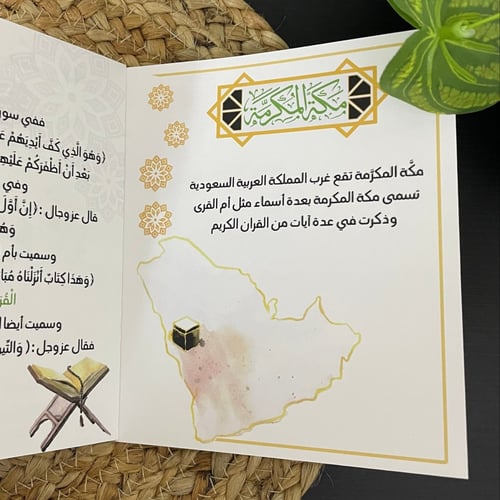 مكة المكرمة
مكَّة المكرَّمة تقع غرب المملكة العربية السعودية
تسمى مكة المكرمة بعدة أسماء مثل أم القرى
وذكرت في عدة آيات من القران الكريم
ففي سو
(وَهُوَ الَّذِي كَفَّ أَيْدِيَهُمْ عَ
بَعْدِ أَنْ أَظْفَرَكُمْ عَلَيْهِ
وفي
قال عزوجل :(إِنَّ أَوَّلَ
وَهُ
وسميت بأم
(وَهَذَا كِتَابٌ أَنْزَلْنَاهُ مُبَا
الْقُرَ
وسميت أيضا ا
فقال عزوجل :( وَالتِّي